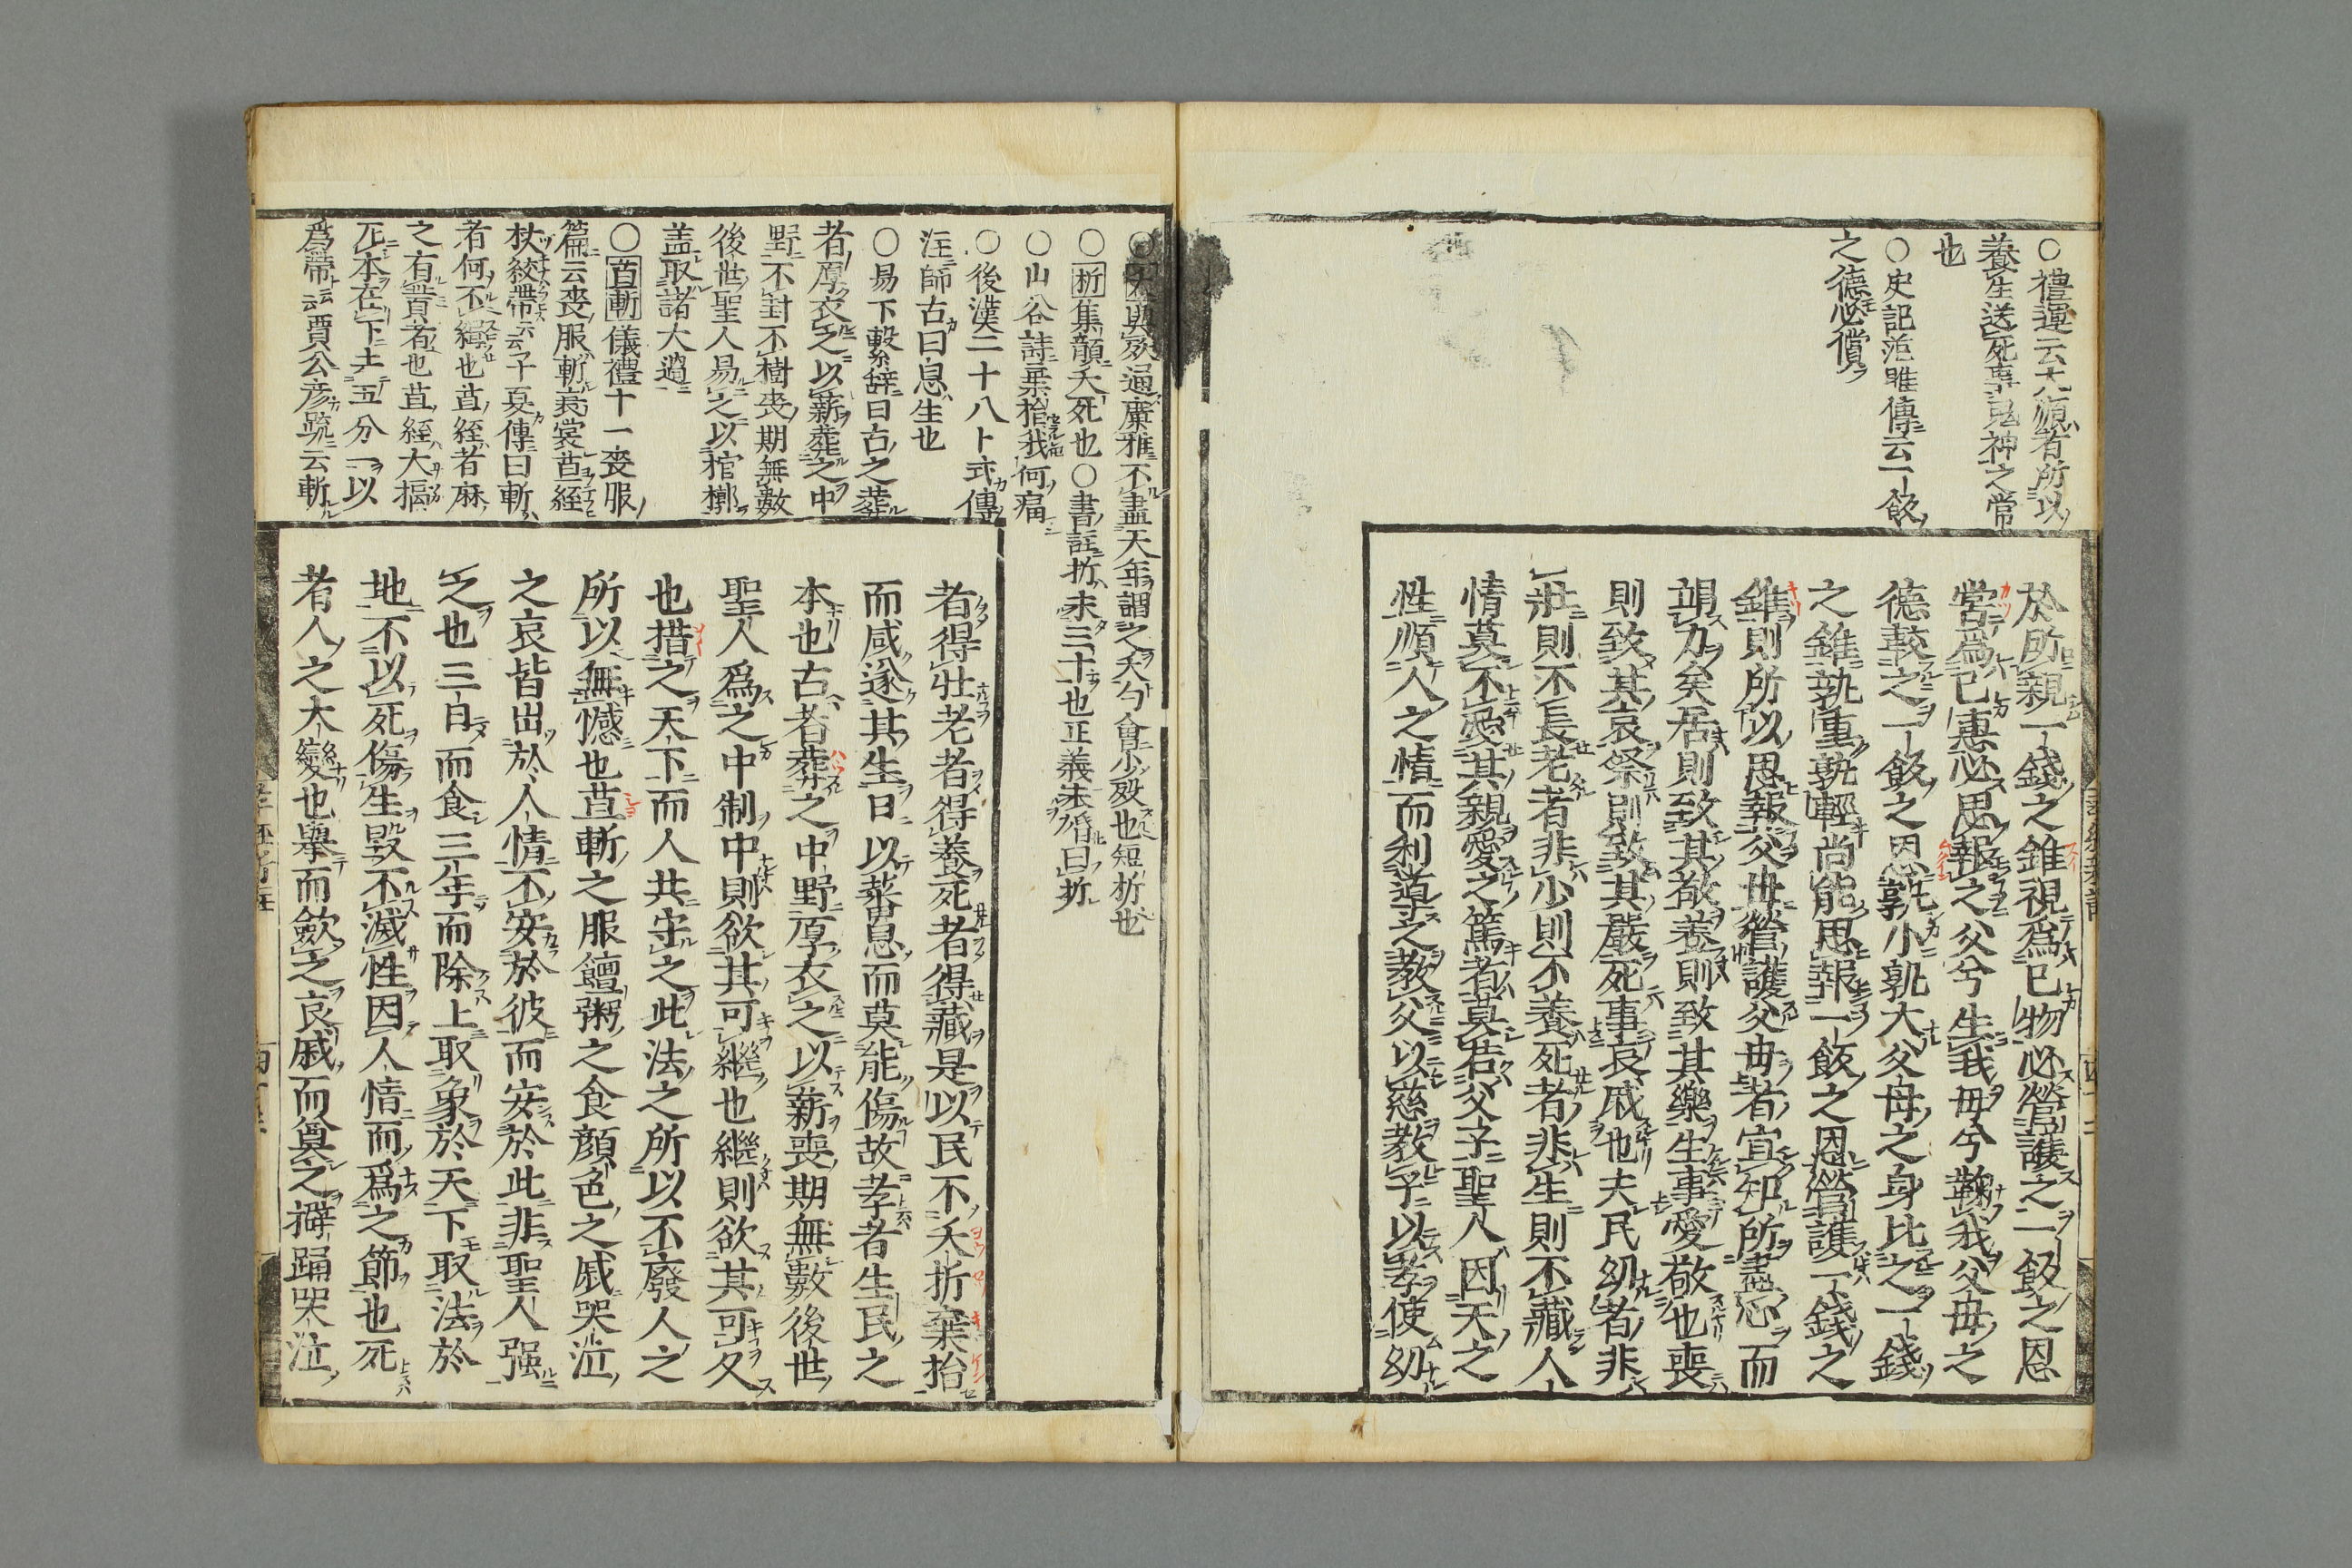 ○禮運云大順者所以
養生送死事鬼神之常
也
○史記范雎傳云一飯
之德必償
於所親一錢之錐視爲已物必營護之一飯之恩
當爲已惠必思報之父兮生我母兮鞠我父母之
德較之一飯之恩孰小孰大父母之身比之一錢
之錐孰重孰輕尚能思報一飯之恩營護一錢之
錐則所以思報父母營護父母者宜知所盡心而
竭力矣居則致其敬養則致其樂生事愛敬也喪
則致其哀祭則致其嚴死事哀戚也夫民幼者非
壯則不長老者非少則不養死者非生則不藏人
情莫不愛其親愛之篤者莫若父子聖人因天之
性順人之情而利道之教父以慈教子以孝使幼
○夭與殀通廣雅不盡天年謂之夭今會少歿也短折也
○折集韻夭死也○書註折未三十也正義未婚曰折
○山谷詩棄捐我何痛
○後漢二十八卜式傳
注師古曰息生也
○易下繫辭曰古之葬
者厚衣之以薪葬之中
野不封不樹喪期無數
後世聖人易之以棺槨
盖取諸大過
○苴斬儀禮十一喪服
篇云喪服斬衰裳苴絰
杖絞帶云云子夏傳曰斬
者何不緝也苴絰者麻
之有蕡者也苴絰大搹
左本在下去五分一以
爲帶云云賈公彥疏云斬
者得壯老者得養死者得藏是以民不夭折棄捐
而咸遂其生日以蕃息而莫能傷故孝者生民之
本也古者葬之中野厚衣之以薪喪期無數後世
聖人爲之中制中則欲其可繼也繼則欲其可久
也措之天下而人共守之此法之所以不廢人之
所以無憾也苴斬之服饘粥之食顏色之戚哭泣
之哀皆出於人情不安於彼而安於此非聖人强
之也三日而食三年而除上取象於天下取法於
地不以死傷生毀不滅性因人情而爲之節也死
者人之大變也擧而斂之哀戚而奠之擗踊哭泣